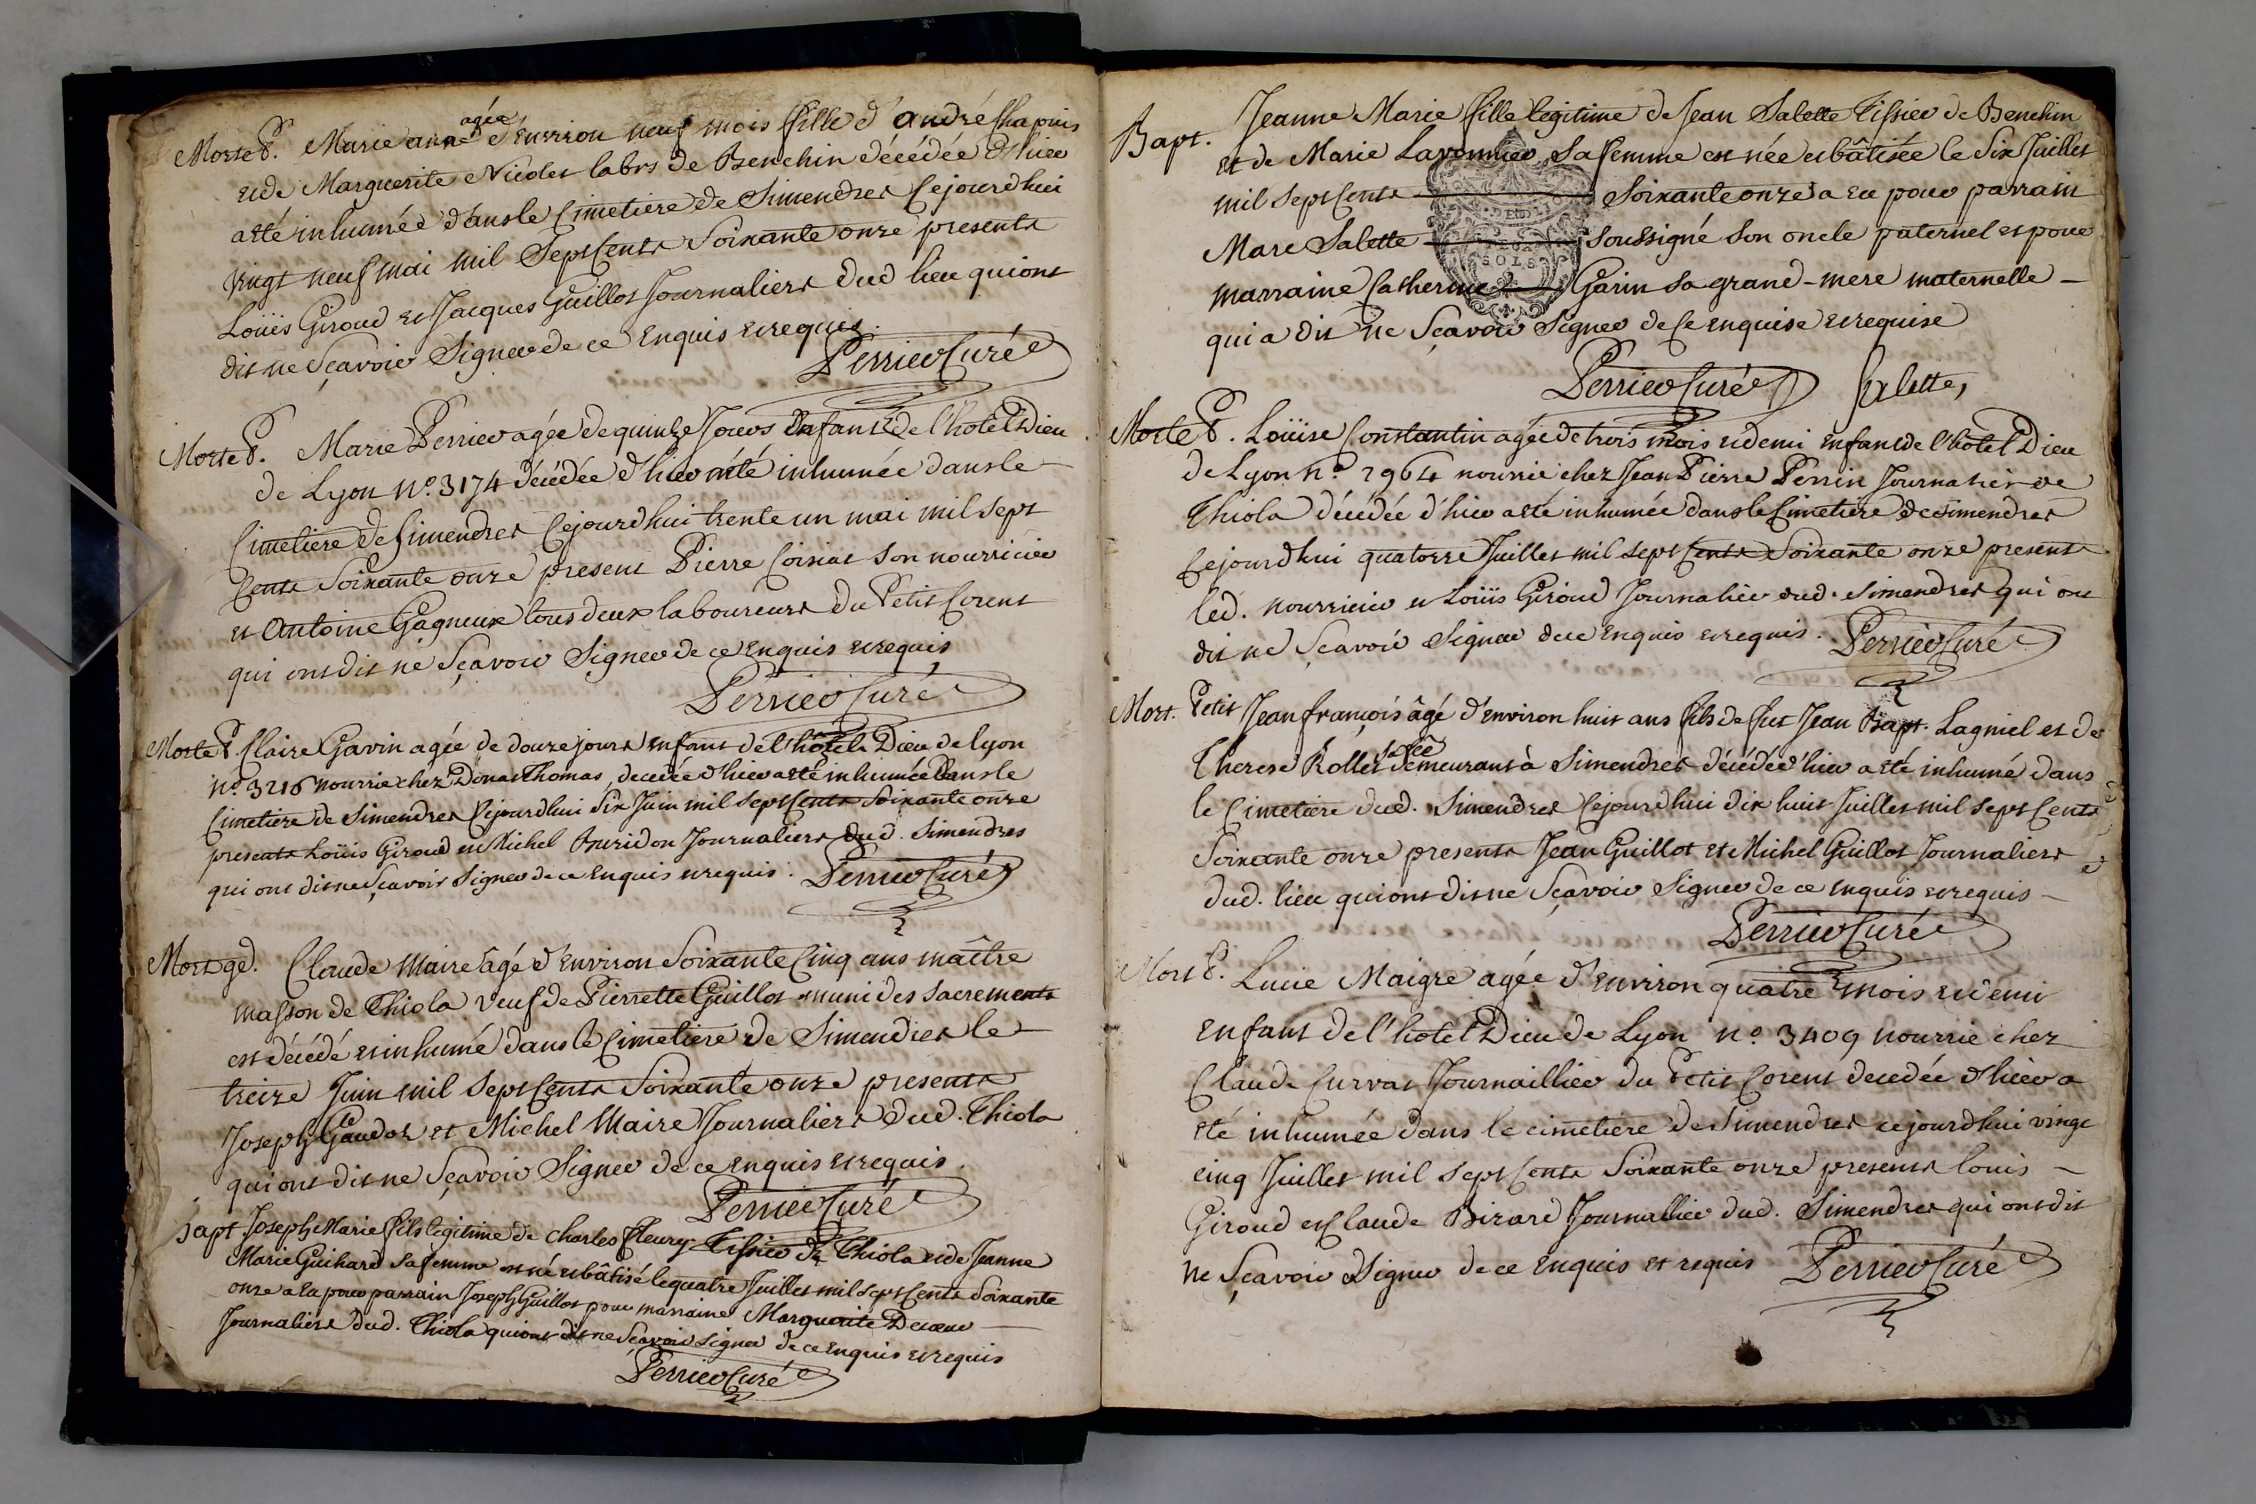 Morte P. Marie anne agée d'environ neuf mois fille d'andré Chapuis
et de Marguerite Nicolet labrs de Benchin décédée d'hier
a été inhumée dans le Cimetiere de Simendres Cejourdhui
vingt neuf mai mil Sept Cents Soixante onze presents
Loüis Giroud et Jacques Guillot Journaliers dud lieu qui ont
dit ne Sçavoir Signer de ce Enquis et requis.
Perrier Curé
Morte P. Marie Perrier agée de quinze Jours Enfant de l'hotel Dieu
de Lyon No. 3174 décédée d'hier a été inhumée dans le
Cimetiere de Simendres Cejourdhui trente un mai mil Sept
Cents Soixante onze present Pierre Coixat son nourricier
et Antoine Gagneux tous deux laboureurs du Petit Corent
qui ont dit ne Sçavoir Signer de ce Enquis et requis
Perrier Curé
Morte P. Claire Gavin agée de douze jours Enfant de l'hotel Dieu de lyon
No. 3216 nourrie chez Donat Thomas decedée d'hier a été inhumée Dans le
Cimetiere de Simendres Cejourdhui Six Juin mil Sept Cents Soixante onze
presents Loüis Giroud et Michel Journaliers dud. Simendres
qui ont dit ne Sçavoir Signer de ce Enquis et requis. Perrier Curé
Mort gd. Claude Maire âgé d'Environ Soixante Cinq ans maître
masson de Thiola veuf de Pierrette Guillot muni des Sacrements
est décédé et inhumé dans le Cimetiere de Simendres le
treize Juin mil Sept Cents Soixante onze presents
Joseph Gaudot et Michel Maire Journaliers dud. Thiola
qui ont dit ne Sçavoir Signer de ce Enquis et requis.
Perrier Curé
Bapt Joseph Marie fils legitime de Charles fleury Tissier de Thiola et de Jeanne
Marie Guichard Sa femme est né et bâtisé le quatre Juillet mil Sept Cents Soixante
onze a eu pour parrain Joseph Guillot pour marraine Marguerite
Journaliers dud. Thiola qui ont dit ne Sçavoir signer de ce Enquis et requis
Perrier Curé
Bapt. Jeanne Marie fille legitime de Jean Salette Tissier de Benchin
et de Marie Lavonnier Sa femme est née et bâtisée le Six Juillet
mil Sept Cents Soixante onze a eu pour parrain
Marc Salette Soussigné Son oncle paternel et pour
marraine Catherine Garin Sa grand-mere maternelle
qui a dit ne Sçavoir Signer de Ce enquise et requise
Perrier Curé Salette
Morte P. Loüise Constantin agée de trois mois et demi Enfant de l'hotel Dieu
de Lyon No. 2964 nourrie chez Jean Pierre Perrin Journalier de
Thiola décédée d'hier a été inhumée dans le Cimetiere de Simendres
Cejourdhui quatorze Juillet mil Sept Cents Soixante onze presents
led. nourricier et Loüis Giroud Journalier dud. Simendres qui ont
dit ne Sçavoir Signer de ce Enquis et requis. Perrier Curé
Mort. Petit Jean françois âgé d'environ huit ans fils de fut Jean Bapt. Lagniel et de
Therese Rollet demeurant à Simendres décédé d'hier a été inhumé dans
le Cimetiere dud. Simendres Cejourdhui dix huit Juillet mil Sept Cents
Soixante onze presents Jean Guillot et Michel Guillot Journaliers
dud. lieu qui ont dit ne Sçavoir Signer de ce Enquis et requis
Perrier Curé
Mort P. Lucie Maigre agée d'Environ quatre mois et demi
Enfant de l'hotel Dieu de Lyon No. 3409 nourrie chez
Claude Curvat Journaillier du Petit Corent decedée d'hier a
été inhumée dans le cimetiere de Simendres ce jourdhui vingt
cinq Juillet mil Sept Cents Soixante onze presents louis
Giroud et Claude Bizard Journallier dud. Simendres qui ont dit
ne Sçavoir Signer de ce Enquis et requis Perrier Curé